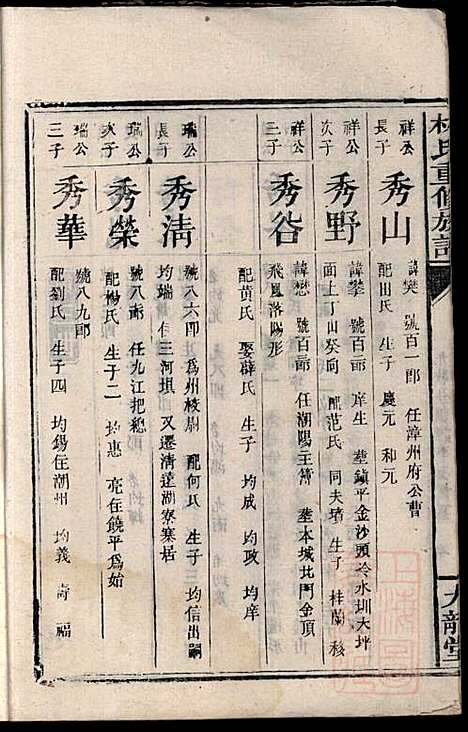 林氏重修族譜
祥公
長子
秀山
諱樊 號百一郎 任漳州府公曹
配田氏 生子 慶元 和元
祥公
次子
秀野
諱攀 號百二郎 庠生 塟鎮平金沙頭冷水圳大坪
面上丁山癸向 配范氏 同夫墳 生子 桂蘭 移
祥公
三子
秀谷
諱懋 號百三郎 任潮陽主簿 塟本城北門金頂
飛鳳落陽形
配黃氏 娶薛氏 生子 均成 均政 均庠
瑞公
長子
秀清
號八六郎 為州棱尉 配何氏 生子三 均信出嗣
均瑞 住三河垻 又遷清遠湖寮寨居
瑞公
次子
秀榮
號八 任九江把總
配楊氏 生子二 均惠 亮在饒平為始
瑞公
三子
秀華
號八九郎
配劉氏 生子四 均錫住潮州 均義 壽 福
九龍堂